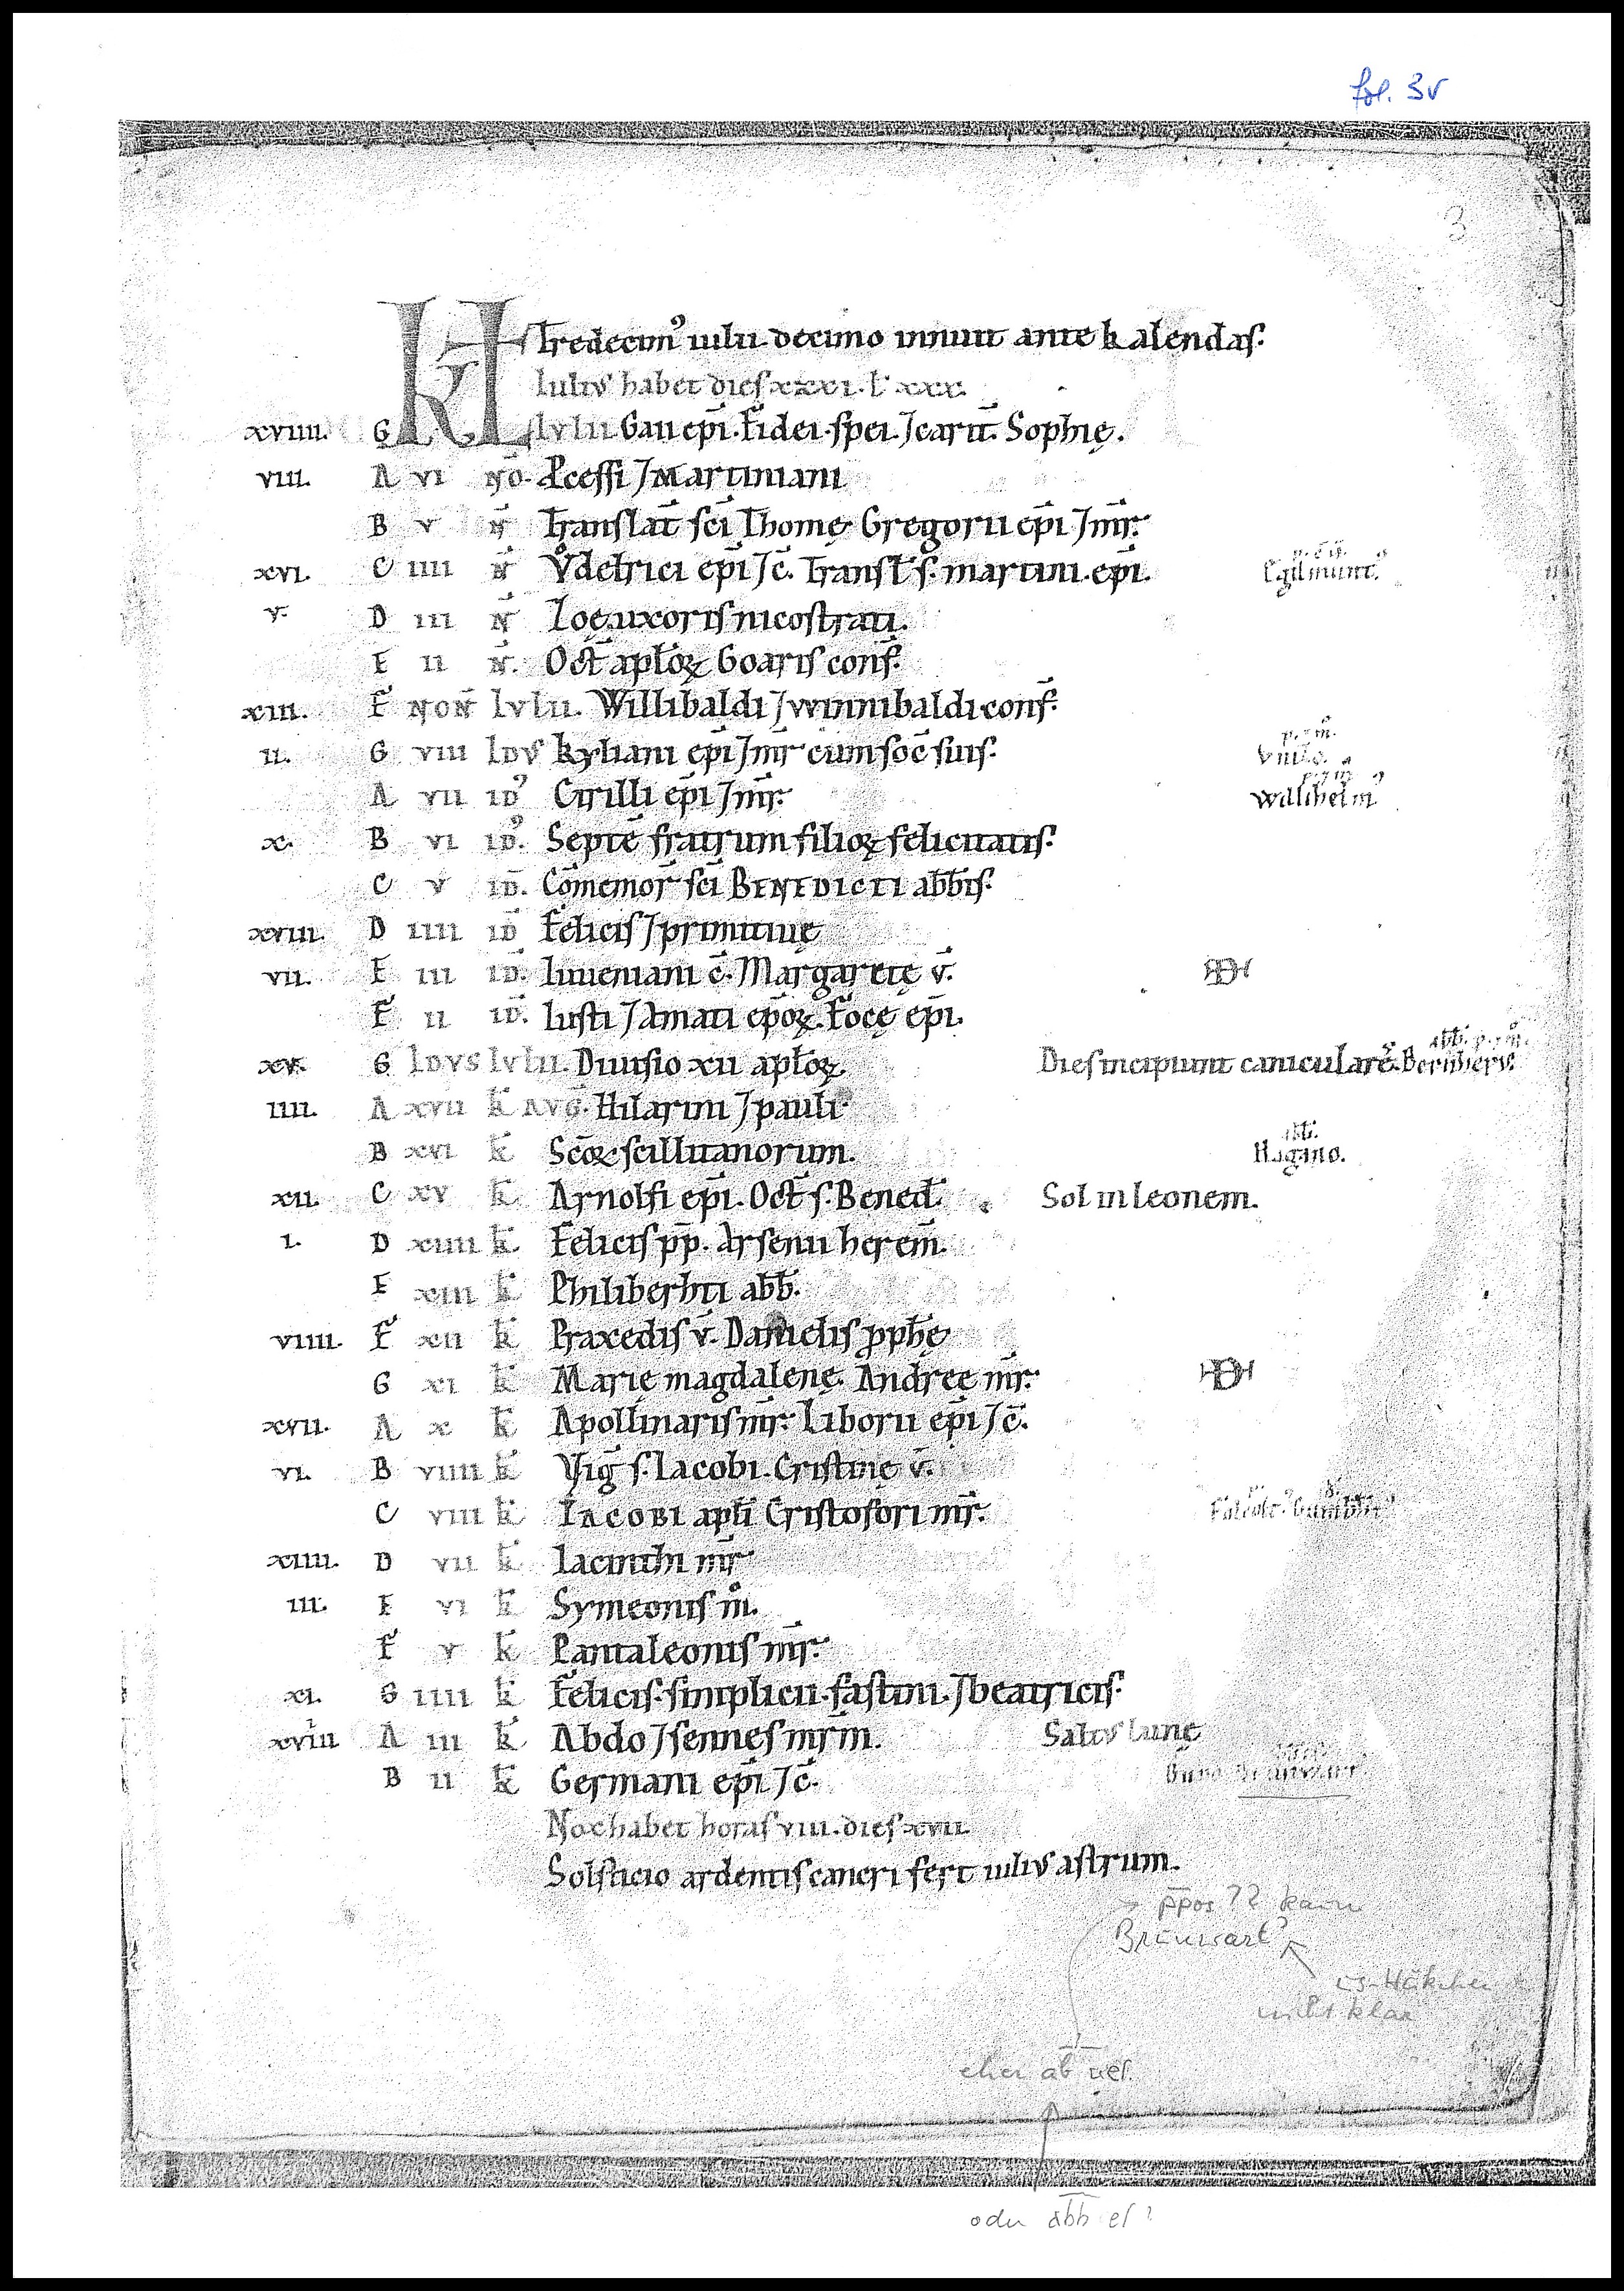 fol. 3v
3
KL Tredecim⁹ iulii decimo innuit ante kalendas.
Iulius habet dies xxxi. l xxx.
xviiii. G IULII Gaii ep̄i. Fidei. spei. ⁊ carit̄. Sophię.
viii. A vi NO. P̄cessi ⁊ Martiniani
B v N̄ Translat̄ sc̄i Thomę Gregorii ep̄i ⁊ mr̄.
xvi. C iiii N̄ Vͦdelrici ep̄i ⁊ c̄. Transl̄ s. martini. ep̄i. Egilmunt⁹
v. D iii N̄ Zoę. uxoris nicostrati.
E ii N̄. Oct̄ apl̄oꝝ Goaris conf̄.
xiii. F NON̄ IULII. Willibaldi ⁊ vvinnibaldi conf̄.
ii. G viii IDUS kyliani ep̄i ⁊ mr̄ cum soc̄ suis.
A vii ID⁹ Cirilli ep̄i ⁊ mr̄. Willihelm⁹
x. B vi ID̄. Septē fratrum filioꝝ felicitatis.
C v ID̄. Cōmemor̄ sc̄i BENEDICTI abb̄is.
xviii. D iiii ID̄ Felicis ⁊ primitiuę
vii. E iii ID̄. Iuueniani c̄. Margaretę v̄.
F ii ID̄. Iusti ⁊ Amati ep̄oꝝ. Focę ep̄i.
xv. G IDUS IULII. Diuisio xii apl̄oꝝ Dies incipiunt canicularē. Bernheru⁹.
iiii. A xvii k̄ AUG̅. Hilarini ⁊ pauli
B xvi k̄ Sc̄oꝝ scillitanorum. Hagano.
xii. C xv k̄ Arnolfi ep̄i. Oct̄ s. Bened̄. Sol in leonem.
i. D xiiii k̄. Felicis pp̄. Arsenii herem̄.
E xiii k̄ Philiberhti abb̄.
viiii. F xii k̄ Praxedis v̄. Danielis ꝓph̄ę
G xi k̄ Marię magdalenę. Andreę mr̄.
xvii. A x k̄ Apollinaris mr̄. Liborii ep̄i ⁊ c̄.
vi. B viiii k̄ Vig̅ s. Iacobi. Cristinę v̄.
C viii k̄ IACOBI apl̄i Cristofori mr̄.
xiiii. D vii k̄ Iacinthi mr̄
iii. E vi k̄ Symeonis m̊.
F v k̄ Pantaleonis mr̄.
xi. G iiii k̄ Felicis. simplicii. fastini. ⁊ beatricis.
xviiii A iii k̄ Abdo ⁊ sennes mr̄m. Saltus lunę
B ii k̄ Germani ep̄i ⁊ c̄.
Nox habet horas viii. dies xvii.
Solsticio ardentis cancri fert iulius astrum.
→ p̄pos ?? kaum
Brunwart⁹
us-Häkchen
nicht klar
eher ab̄ ues.
oder abb̄ es ?